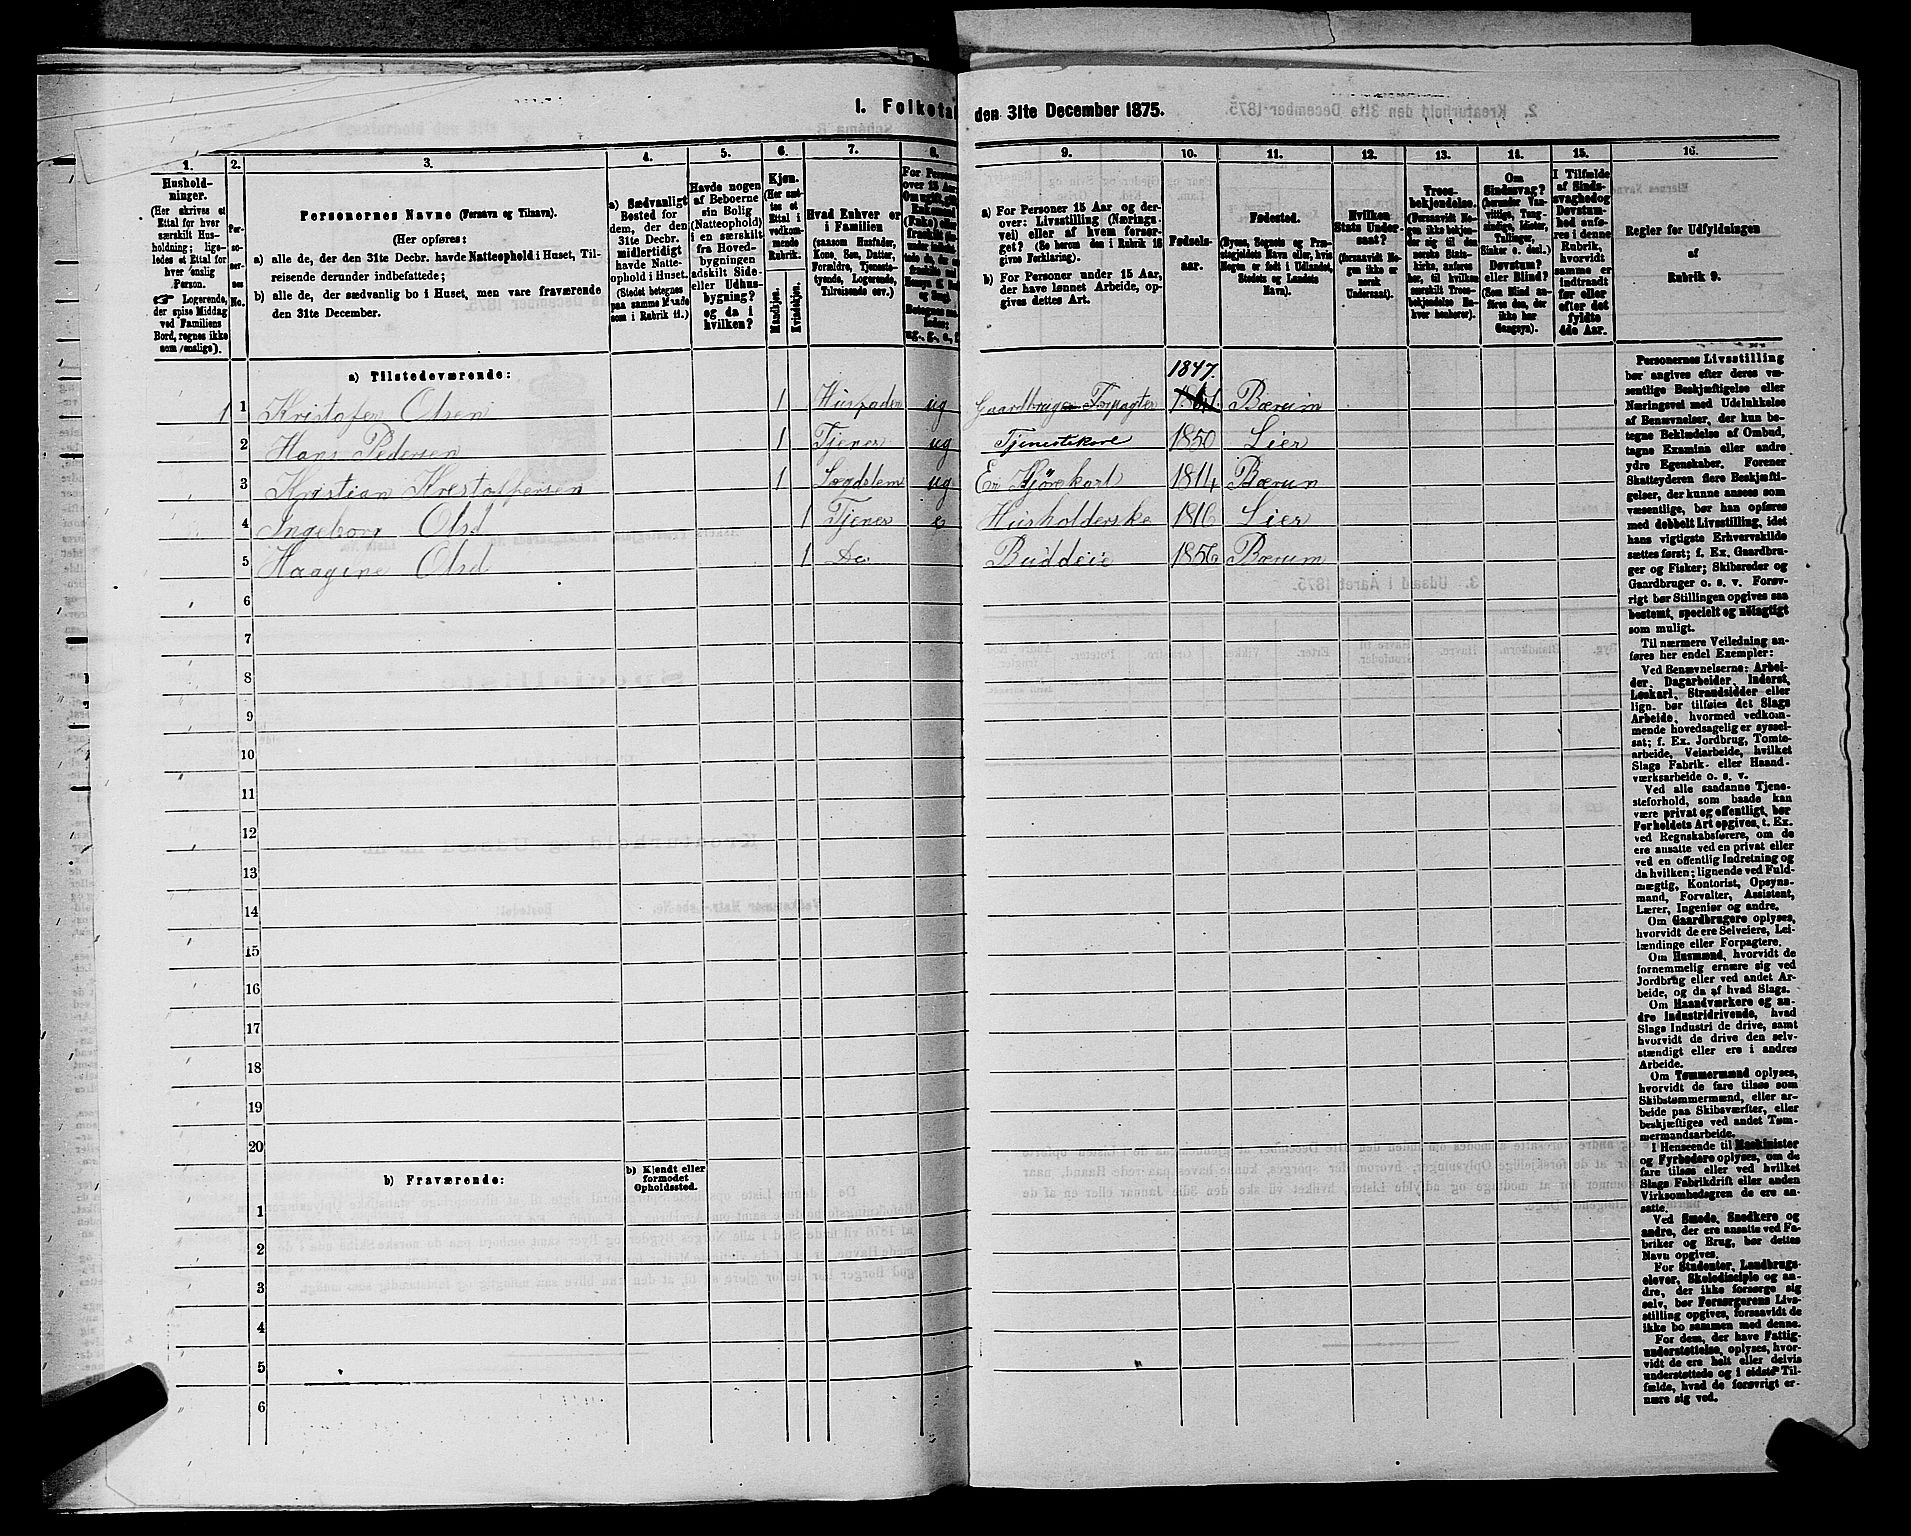 1. Folketal
den 31te December 1875.
1.
2.
3.
4.
5.
6.
7.
8.
9.
10.
11.
12.
13.
14.
15.
16.
Hushold-
ninger.
(Her skrives et
Ettal for hver
særskilt Hus-
holdning; lige-
ledes et Ettal for
hver enslig
Person.
☞ Logerende,
der spise Middag
ved Familiens
Bord, regnes ikke
som enslige).
Per-
so-
ner-
nes
No.
Personernes Navne (Fornavn og Tilnavn).
(Her opføres:
a) alle de, der den 31te Decbr. havde Natteophold i Huset, Til-
reisende derunder indbefattede;
b) alle de, der sædvanlig bo i Huset, men vare fraværende
den 31te December.
a) Sædvanligt
Bosted for
dem, der den
31te Decbr.
midlertidigt
havde Natte-
ophold i Huset.
(Stedet betegnes
paa samme Maade
som i Rubrik 11.)
Havde nogen
af Beboerne
sin Bolig
(Natteophold)
i en særskilt
fra Hoved-
bygningen
adskilt Side-
eller Udhus-
bygning?
og da i
hvilken?
Kjøn.
(Her sæt-
tes et
Ettal i
vedkom-
mende
Rubrik.
Mandkjøn.
Kvindekjøn.
Hvad Enhver er
i Familien
(saasom Husfader,
Kone, Søn, Datter,
Forældre, Tjeneste-
tyende, Logerende,
Tilreisende osv.)
For Personer
over 15 Aar
a) For Personer 15 Aar og der-
over: Livsstilling (Nærings-
vei) eller af hvem forsør-
get? (Se herom den i Rubrik 16
givne Forklaring).
b) For Personer under 15 Aar,
der have lønnet Arbeide, op-
gives dettes Art.
Fødsels-
aar.
Fødested.
(Byens, Sognets og Præ-
stegjeldets Navn eller, hvis
Nogen er født i Udlandet,
Stedets og Landets
Navn).
Hvilken
Stats Under-
saat?
(forsaavidt No-
gen ikke er
norsk
Undersaat).
Troes-
bekjendelse.
(Forsaavidt No-
gen ikke bekjen-
der sig til den
norske Stats-
kirke, anføres
her, til hvilken
særskilt Troes-
bekjendelse En-
hver henhører).
Om
Sindssvag?
(herunder Van-
vittige, Tung-
sindige, Idioter,
Tullinger,
Sinker o. desl.)
Døvstum?
eller Blind?
(Som Blind an-
føres den, der
ikke har
Gangsyn).
I Tilfælde
af Sinds-
svaghed og
Døvstum-
hed anfø-
res i denne
Rubrik,
hvorvidt
samme er
indtraadt
før eller
efter det
fyldte
4de Aar.
Regler for Udfyldningen
af
Rubrik 9.
a) Tilstedeværende:
1847.
1 1 Kristofer Olsen 1 Husfader ug Gaardbruger Forpagter Bærum
2 Hans Pedersen 1 Tjener ug Tjenestekarl 1850 Lier
3 Kristian 1 ug Kjørekarl Bærum
4 Ingeborg Olsd 1 Tjener e Husholderske 1816 Lier
5 Haagine Olsd 1 Do Buddeie 1856 Bærum
6
7
8
9
10
11
12
13
14
15
16
17
18
19
20
b) Fraværende:
b) Kjendt eller
formodet
Opholdssted.
1
2
3
4
5
6
Personernes Livsstilling
bør angives efter deres væ-
sentlige Beskjæftigelse eller
Næringsvei med Udelukkelse
af Benævnelser, der kun be-
tegne Beklædelse af Ombud,
tagne Examina eller andre
ydre Egenskaber. Forener
Skatteyderen flere Beskjæfti-
gelser, der kunne ansees som
væsentlige, bør han opføres
med dobbelt Livsstilling, idet
hans vigtigste Erhvervskilde
sættes først; f. Ex. Gaardbru-
ger og Fisker; Skibsreder og
Gaardbruger o. s. v. Forøv-
rigt bør Stillingen opgives saa
bestemt, specielt og nøiagtigt
som muligt.
Til nærmere Veiledning an-
føres her endel Exempler:
Ved Benævnelserne: Arbei-
der, Dagarbeider, Inderst,
Løskarl, Strandsidder eller
lign. bør tilføies det Slags
Arbeide, hvormed vedkom-
mende hovedsagelig er syssel-
sat; f. Ex. Jordbrug, Tomte-
arbeide, Veiarbeide, hvilket
Slags Fabrik- eller Haand-
værksarbeide o. s. v.
Ved alle saadanne Tjene-
steforhold, som baade kan
være privat og offentligt, bør
Forholdets Art opgives, t. Ex.
ved Regnskabsførere, om de
ere ansatte ved en privat eller
ved en offentlig Indretning og
da hvilken; lignende ved Fuld-
mægtig, Kontorist, Opsyns-
mand, Forvalter, Assistent,
Lærer, Ingeniør og andre.
Om Gaardbrugere oplyses,
hvorvidt de ere Selveiere, Lei-
lændinge eller Forpagtere.
Om Husmænd, hvorvidt de
fornemmelig ernære sig ved
Jordbrug eller ved andet Ar-
beide, og da af hvad Slags.
Om Haandværkere og an-
dre Industridrivende, hvad
Slags Industri de drive, samt
hvorvidt de drive den selv-
stændigt eller ere i andres
Arbeide.
Om Tømmermænd oplyses,
hvorvidt de fare tilsøs som
Skibstømmermænd, eller ar-
beide paa Skibsværfter, eller
beskjæftiges ved andet Tøm-
mermandsarbeide.
I Henseende til Maskinister
og Fyrbødere oplyses, om de
fare tilsøs eller ved hvilket
Slags Fabrikdrift eller anden
Virksombedsgren de ere an-
satte.
Ved Smede, Snedkere og
andre, der ere ansatte ved Fa-
briker og Brug, bør dettes
Navn opgives.
For Studenter, Landbrugs-
elever, Skoledisciple og an-
dre, der ikke forsørge sig
selv, bør Forsørgerens Livs-
stilling opgives, forsaavidt de
ikke bo sammen med denne.
For dem, der have Fattig-
understøttelse, oplyses, hvor-
vidt de ere helt eller delvis
understøttede og i sidste Til-
fælde, hvad de forøvrigt er-
nære sig ved.